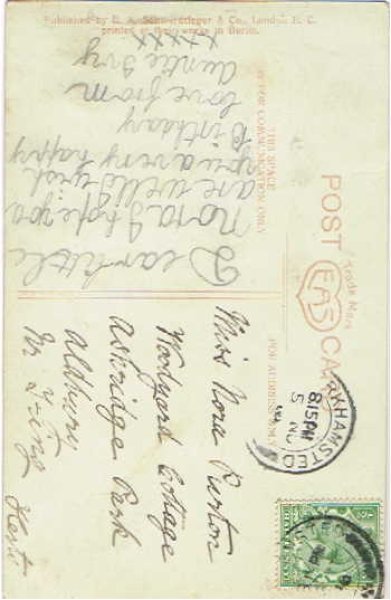 Published by E. A. Schwerdtfeger & Co., London E. C.
printed at their works in Berlin.
POST CARD
Trade Mark
EAS
THIS SPACE
FOR COMMUNICATION ONLY
FOR ADDRESS ONLY
Dear little
Nora I hope you
are well & wish
you a very happy
Birthday
love from
Auntie Ivy
xxxx
Miss Nora Purton
Woodyard Cottage
Ashridge Park
Aldbury
Nr Tring
Herts
BERKHAMSTED
8.15PM
5 NO